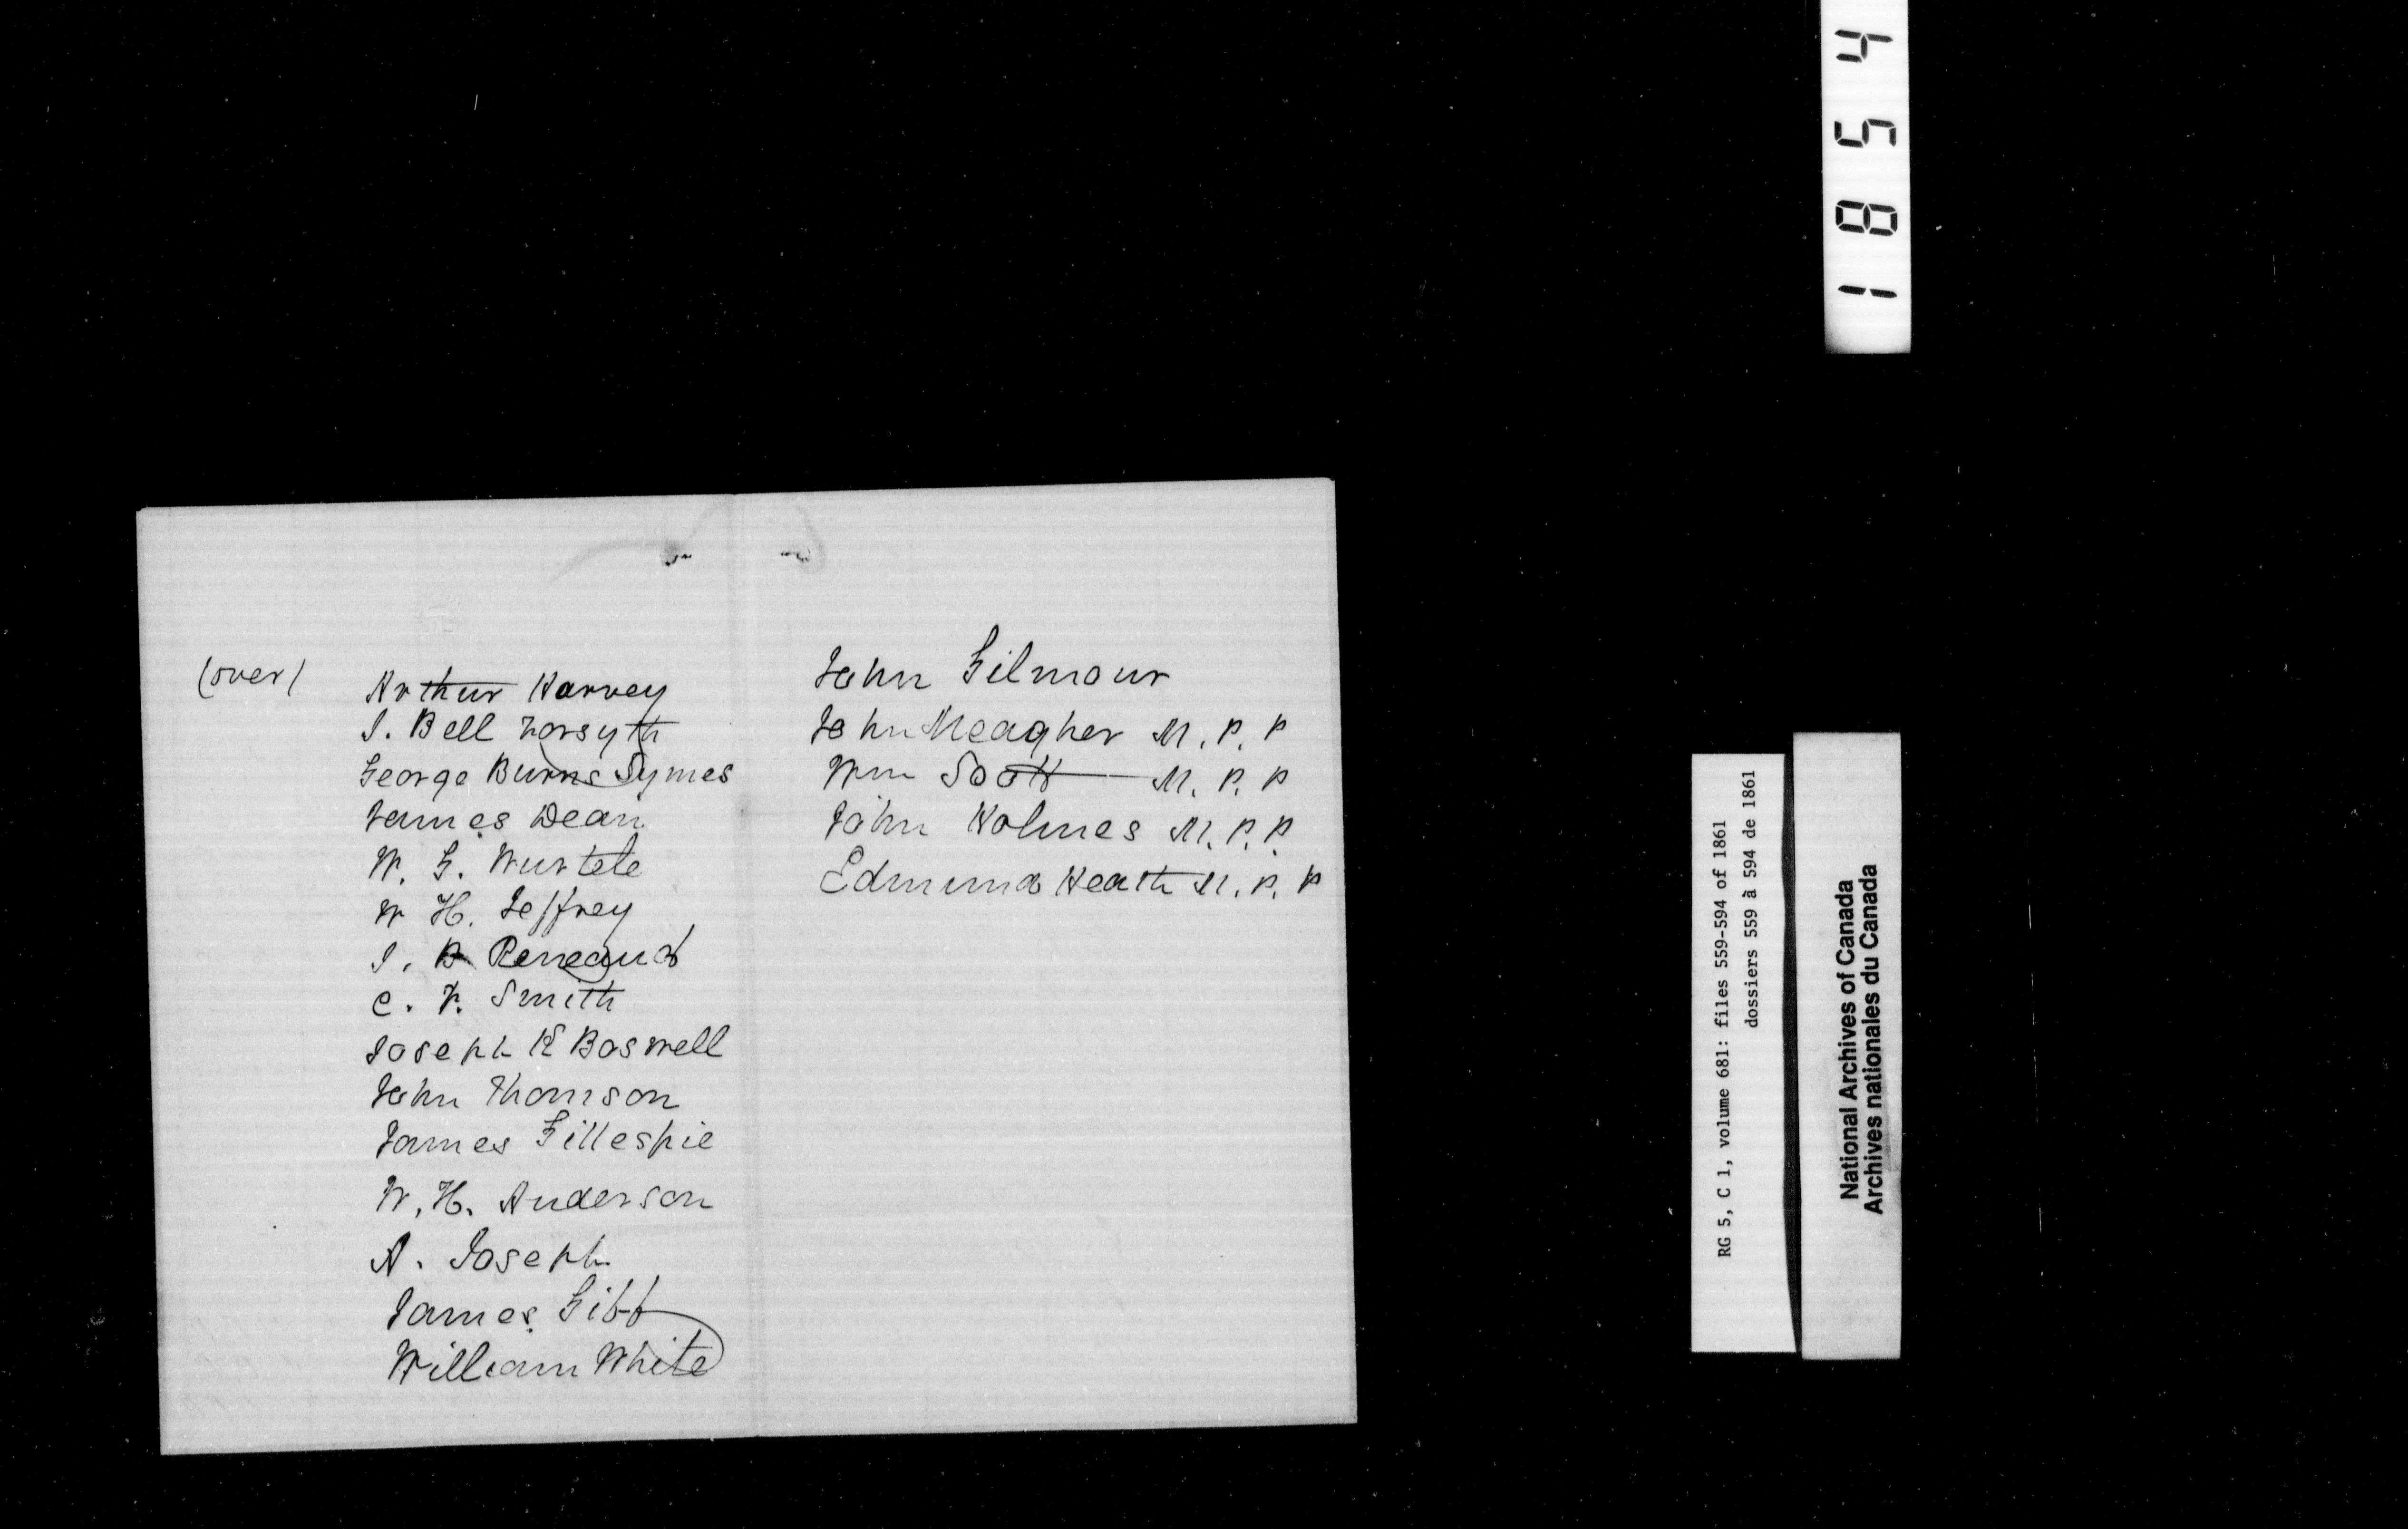 (over)
Arthur Harvey
J. Bell Forsyth
George Burns Symes
James Dean
W. G. Wurtele
W H. Jeffrey
J. B Reneaud
C. F. Smith
Joseph K Boswell
John Thomson
James Gillespie
W. H. Anderson
A. Joseph
James Gibb
William White
John Gilmour
John Meagher M. P. P
Wm Scott M. P. P
John Holmes M. P. P.
Edmund Heath M. P. P
1854
RG 5, C 1, volume 681: files 559-594 of 1861
dossiers 559 à 594 de 1861
National Archives of Canada
Archives nationales du Canada